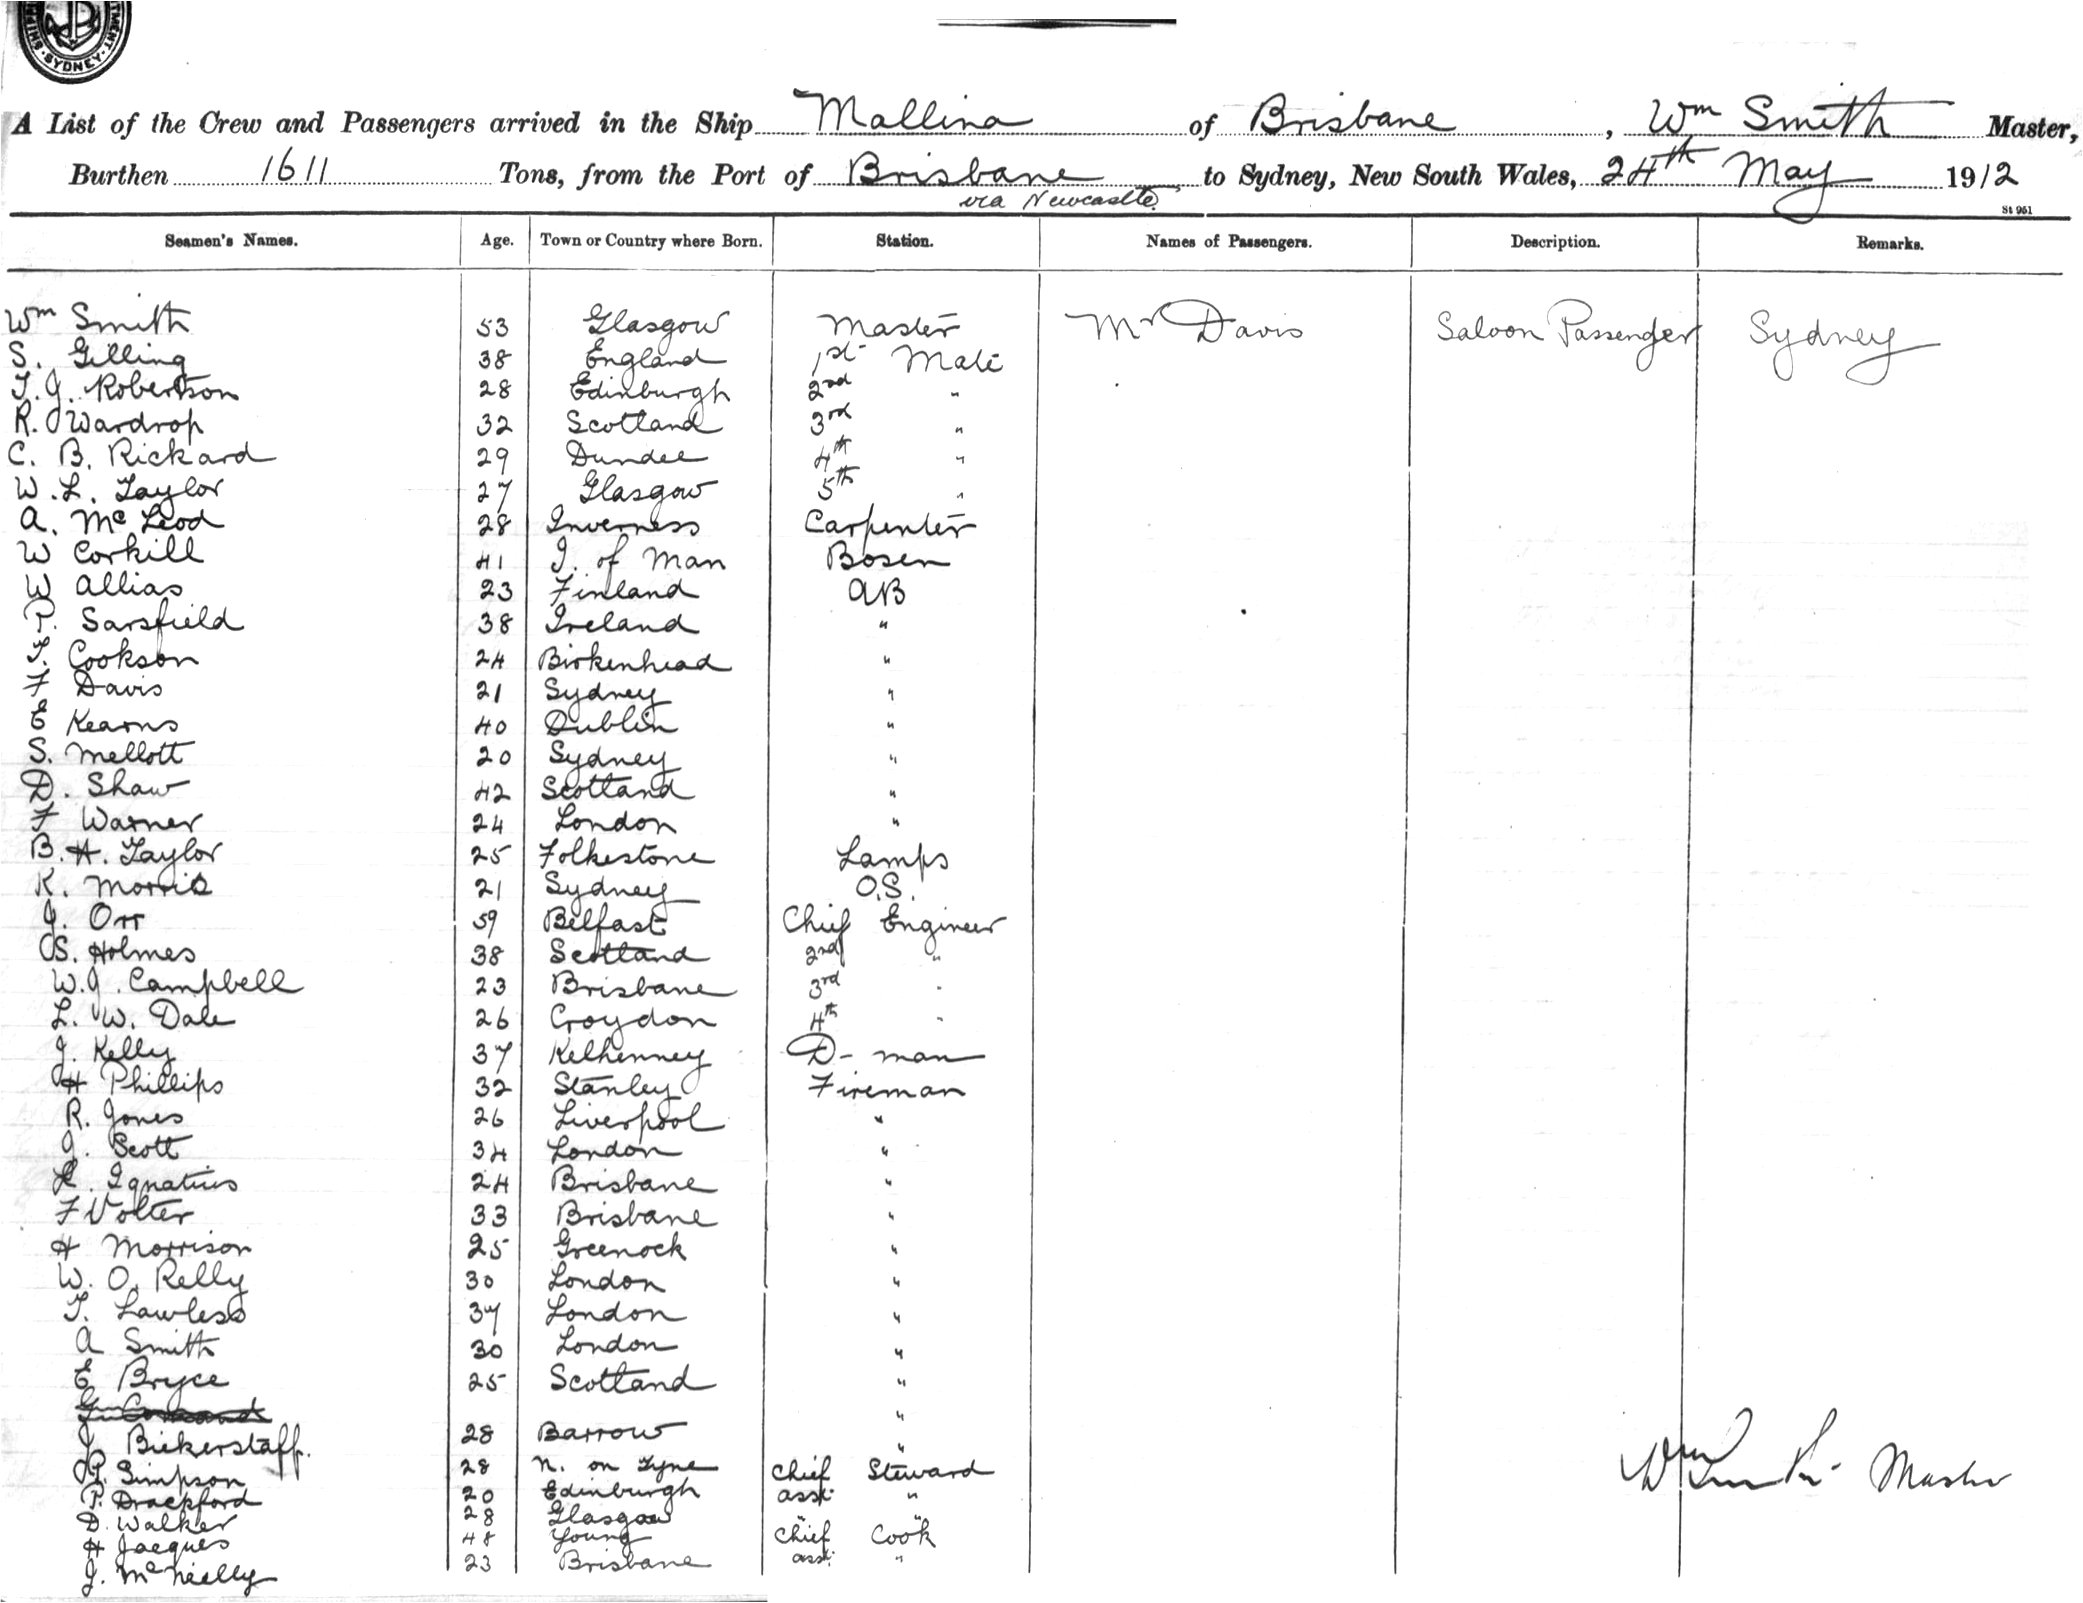 SHIPPING
SYDNEY
A List of the Crew and Passengers arrived in the Ship Mallina of Brisbane, Wm Smith Master,
Burthen 1611 Tons, from the Port of Brisbane to Sydney, New South Wales, 24th May 1912
via Newcastle.
St 951
Seamen's Names. Age. Town or Country where Born. Station. Names of Passengers. Description. Remarks.
Wm Smith 53 Glasgow Master Mr Davis Saloon Passenger Sydney
S. Gilling 38 England 1st Mate
T. J. Robertson 28 Edinburgh 2nd "
R. Wardrop 32 Scotland 3rd "
C. B. Rickard 29 Dundee 4th "
W. L. Taylor 27 Glasgow 5th "
A. McLeod 28 Inverness Carpenter
W Corkill 41 I. of Man Bosen
W Allias 23 Finland AB
P. Sarsfield 38 Ireland "
T. Cookson 24 Birkenhead "
F Davis 21 Sydney "
E Kearns 40 Dublin "
S. Mellott 20 Sydney "
D. Shaw 42 Scotland "
F Warner 24 London "
B. H. Taylor 25 Folkestone Lamps
K. Morris 21 Sydney O.S.
J. Orr 59 Belfast Chief Engineer
S. Holmes 38 Scotland 2nd "
W. J. Campbell 23 Brisbane 3rd "
L. W. Dale 26 Croydon 4th "
J. Kelly 37 Kelhenney D-man
H Phillips 32 Stanley Fireman
R. Jones 26 Liverpool "
J. Scott 34 London "
L. Ignatius 24 Brisbane "
F Volter 33 Brisbane "
H Morrison 25 Greenock "
W. O. Relly 30 London "
T. Lawless 37 London "
A Smith 30 London "
E Bryce 25 Scotland "
"
J. Bickerstaff. 28 Barrow "
P. Simpson 28 N. on Tyne Chief Steward
P. Drackford 20 Edinburgh asst. "
D. Walker 28 Glasgow " "
H Jacques 48 Young Chief Cook
J. McNeilly 23 Brisbane asst. "
Master